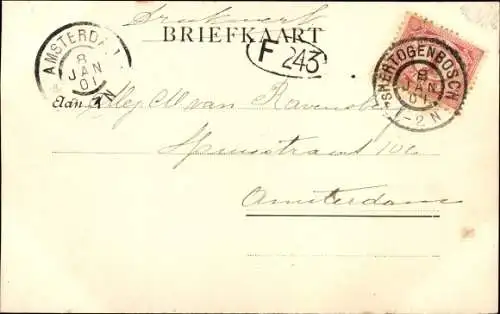 Drukwerk
BRIEFKAART
F 243
AMSTERDAM
8
JAN
01
N
'S HERTOGENBOSCH
8
JAN
01
1-2 N
Aan Mej C M van Ravensberg
Spuistraat 10
Amsterdam